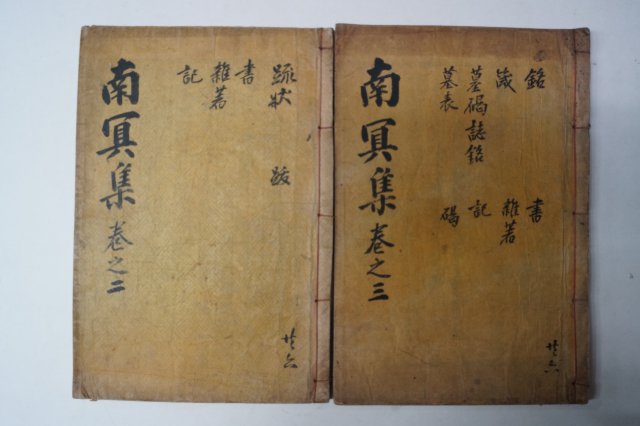 疏狀 跋
書
雜著
記
南冥集卷之二
共六
銘 書
箴 雜著
墓碣誌銘 記
墓表 碣
南冥集卷之三
共六